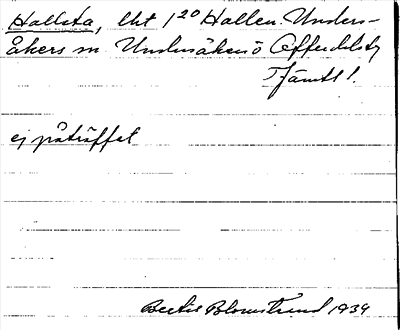 Hallsta, lht 1²⁰ Hallen. Unders-
åkers sn Undersåkers o Offerdals tg
Jämtl.
ej påträffat
Bertil Blomstrand 1939